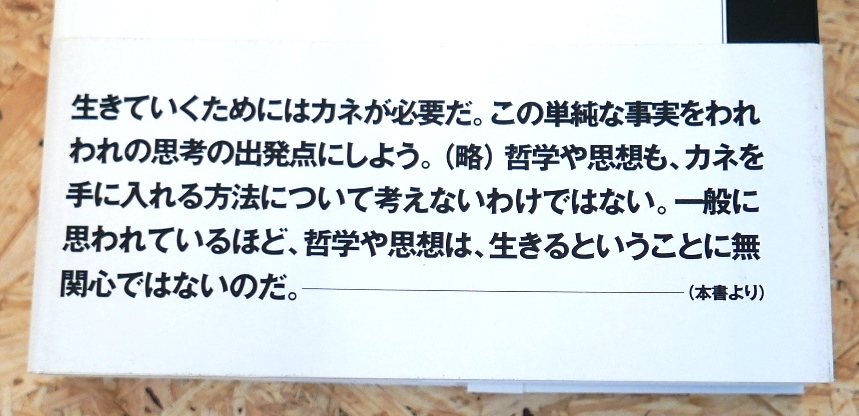 生きていくためにはカネが必要だ。この単純な事実をわれ
われの思考の出発点にしよう。（略）哲学や思想も、カネを
手に入れる方法について考えないわけではない。一般に
思われているほど、哲学や思想は、生きるということに無
関心ではないのだ。――（本書より）